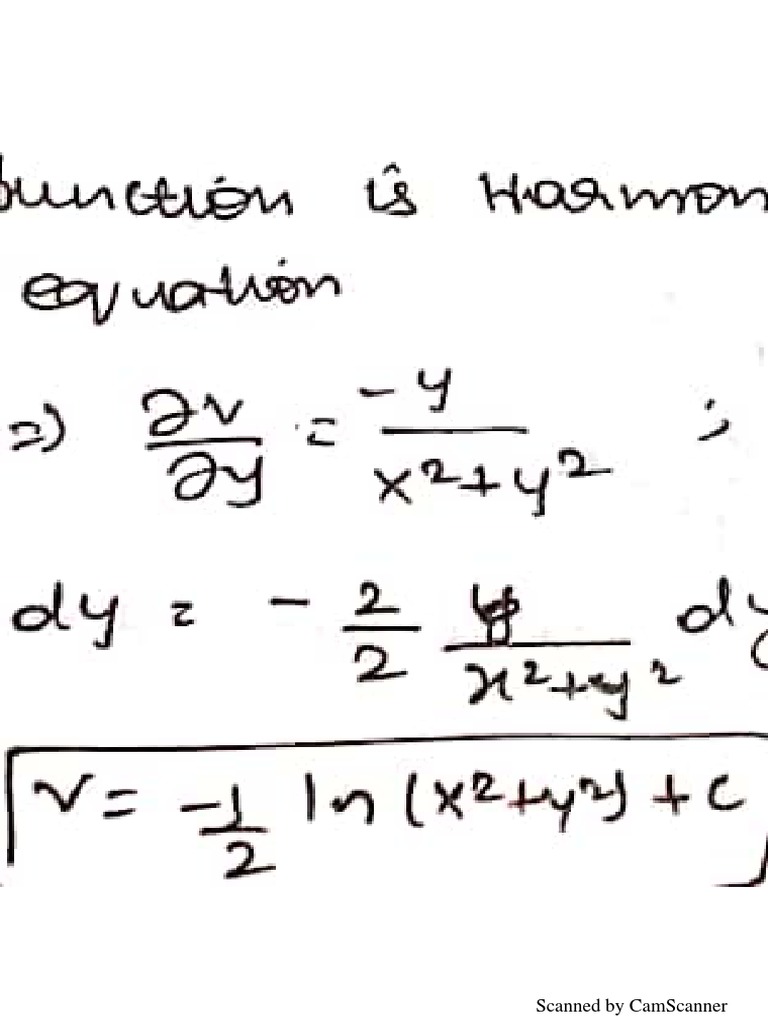 function is Harmon
equation
=> ∂v/∂y = -y/(x²+y²) ;
dy = - 2/2 y/(x²+y²) dy
v = -1/2 ln (x²+y²) + c
Scanned by CamScanner